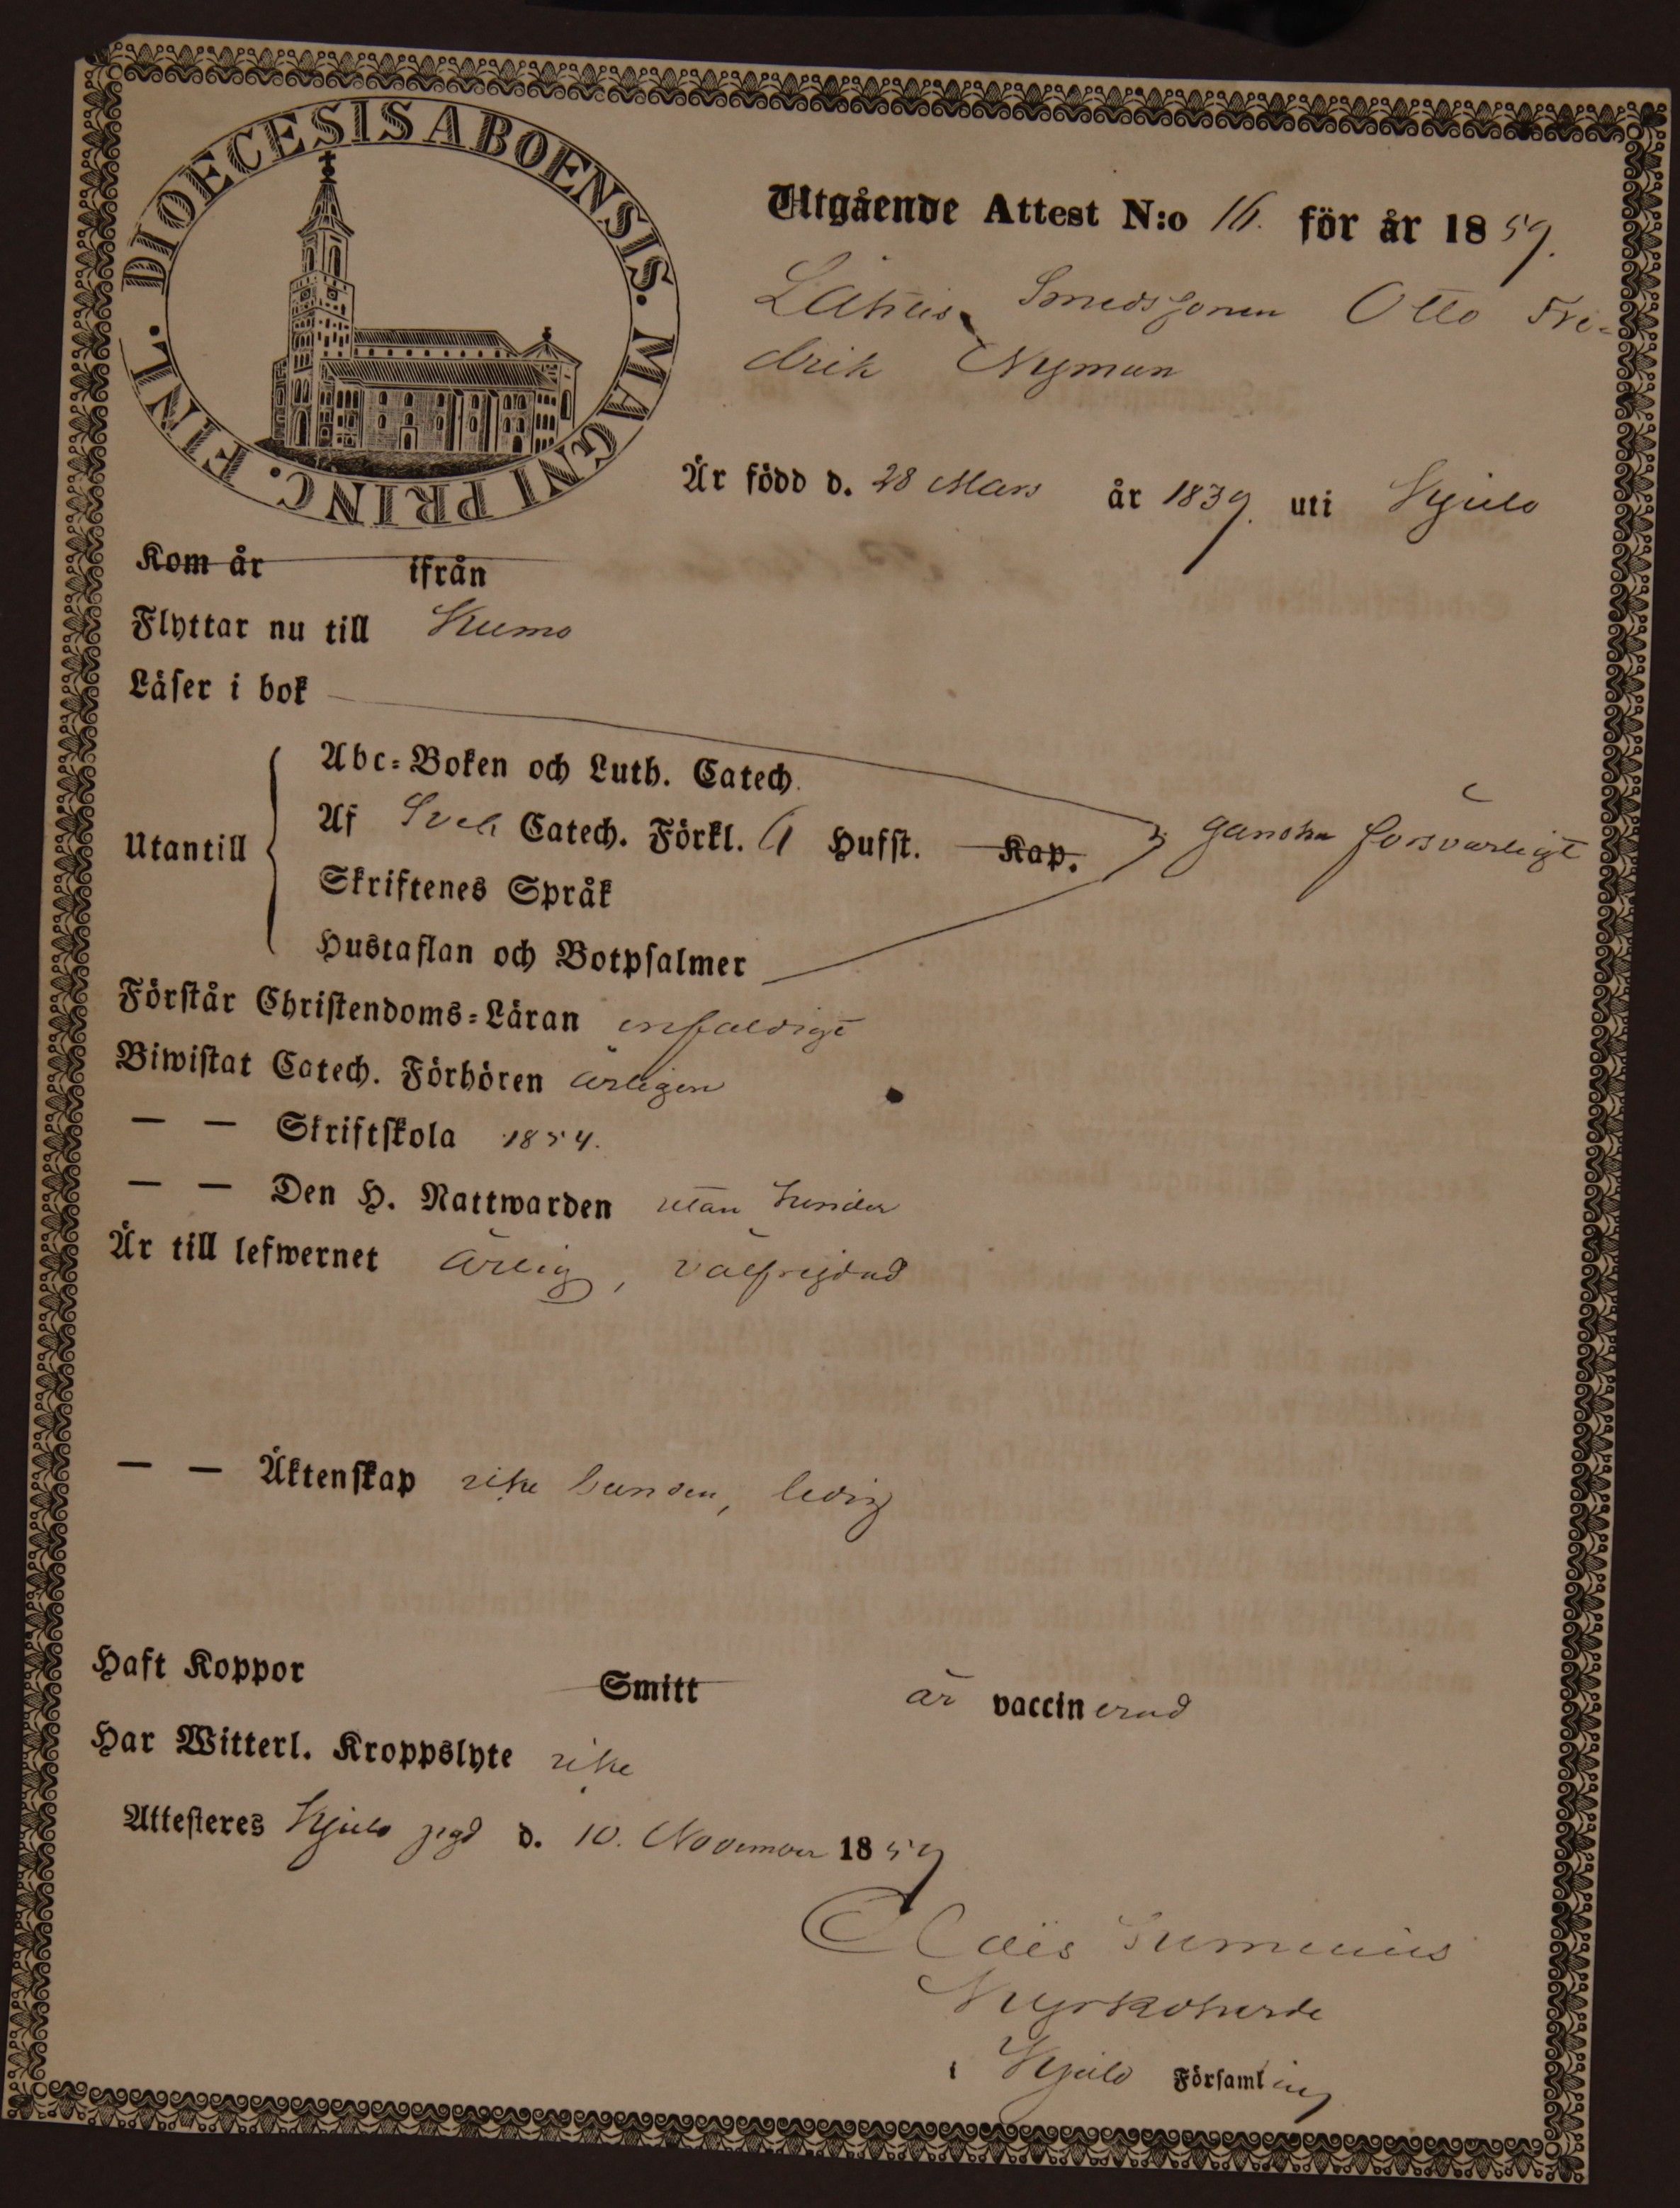 DIOECESIS ABOENSIS. MAGNI PRINC. FINL.
Utgående Attest N:o 16. för år 1859.
Smedssonen Otto Fre-
drik Nyman
Är född d. 28 Mars år 1839. uti Kjulo
Kom år ifrån
Flyttar nu till Kumo
Läser i bok
Abc-Boken och Luth. Catech.
Utantill Af Sveb. Catech. Förkl. 6 Hufst. Kap. ganska försvarligt
Skriftenes Språk
Hustaflan och Botpsalmer
Förstår Christendoms-Läran enfaldigt
Biwistat Catech. Förhören årligen
— — Skriftskola 1854.
— — Den H. Nattwarden utan hinder
Är till lefwernet ärlig, välfrejdad
— — Äktenskap icke bunden, ledig
Haft Koppor Smitt är vaccinerad
Har Witterl. Kroppslyte icke
Attesteres Kjulo pgd d. 10. November 1859
Kyrkoherde
i Kjulo Församling